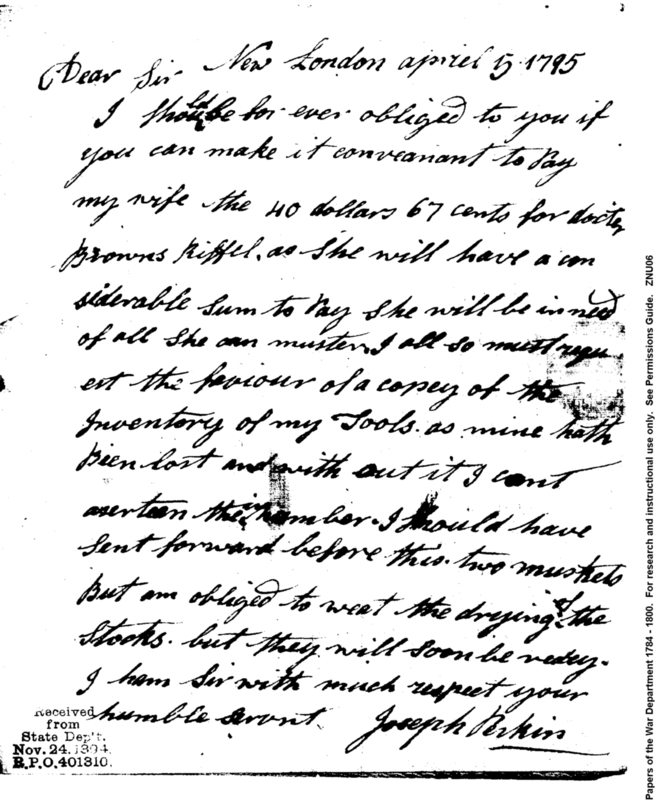 Dear Sir New London apriel 5 1795
I should be for ever obliged to you if
you can make it conveanant to Pay
my wife the 40 dollars 67 cents for docter
Browns Riffel. as She will have a con
siderable Sum to Pay She will be in need
of all She can muster. I all so must requ
est the faviour of a copey of the
Inventory of my Tools. as mine hath
Bien lost and with out it I cant
aserteen the number. I Should have
Sent forward before this two muskets
But am obliged to weat the drying of the
Stocks. but they will Soon be redey.
I ham Sir with much respect your
humble arvont Joseph Perkin
Received
from
State Dep't.
Nov. 24. 1894.
R.P.O. 401310.
Papers of the War Department 1784 - 1800. For research and instructional use only. See Permissions Guide. ZNU06